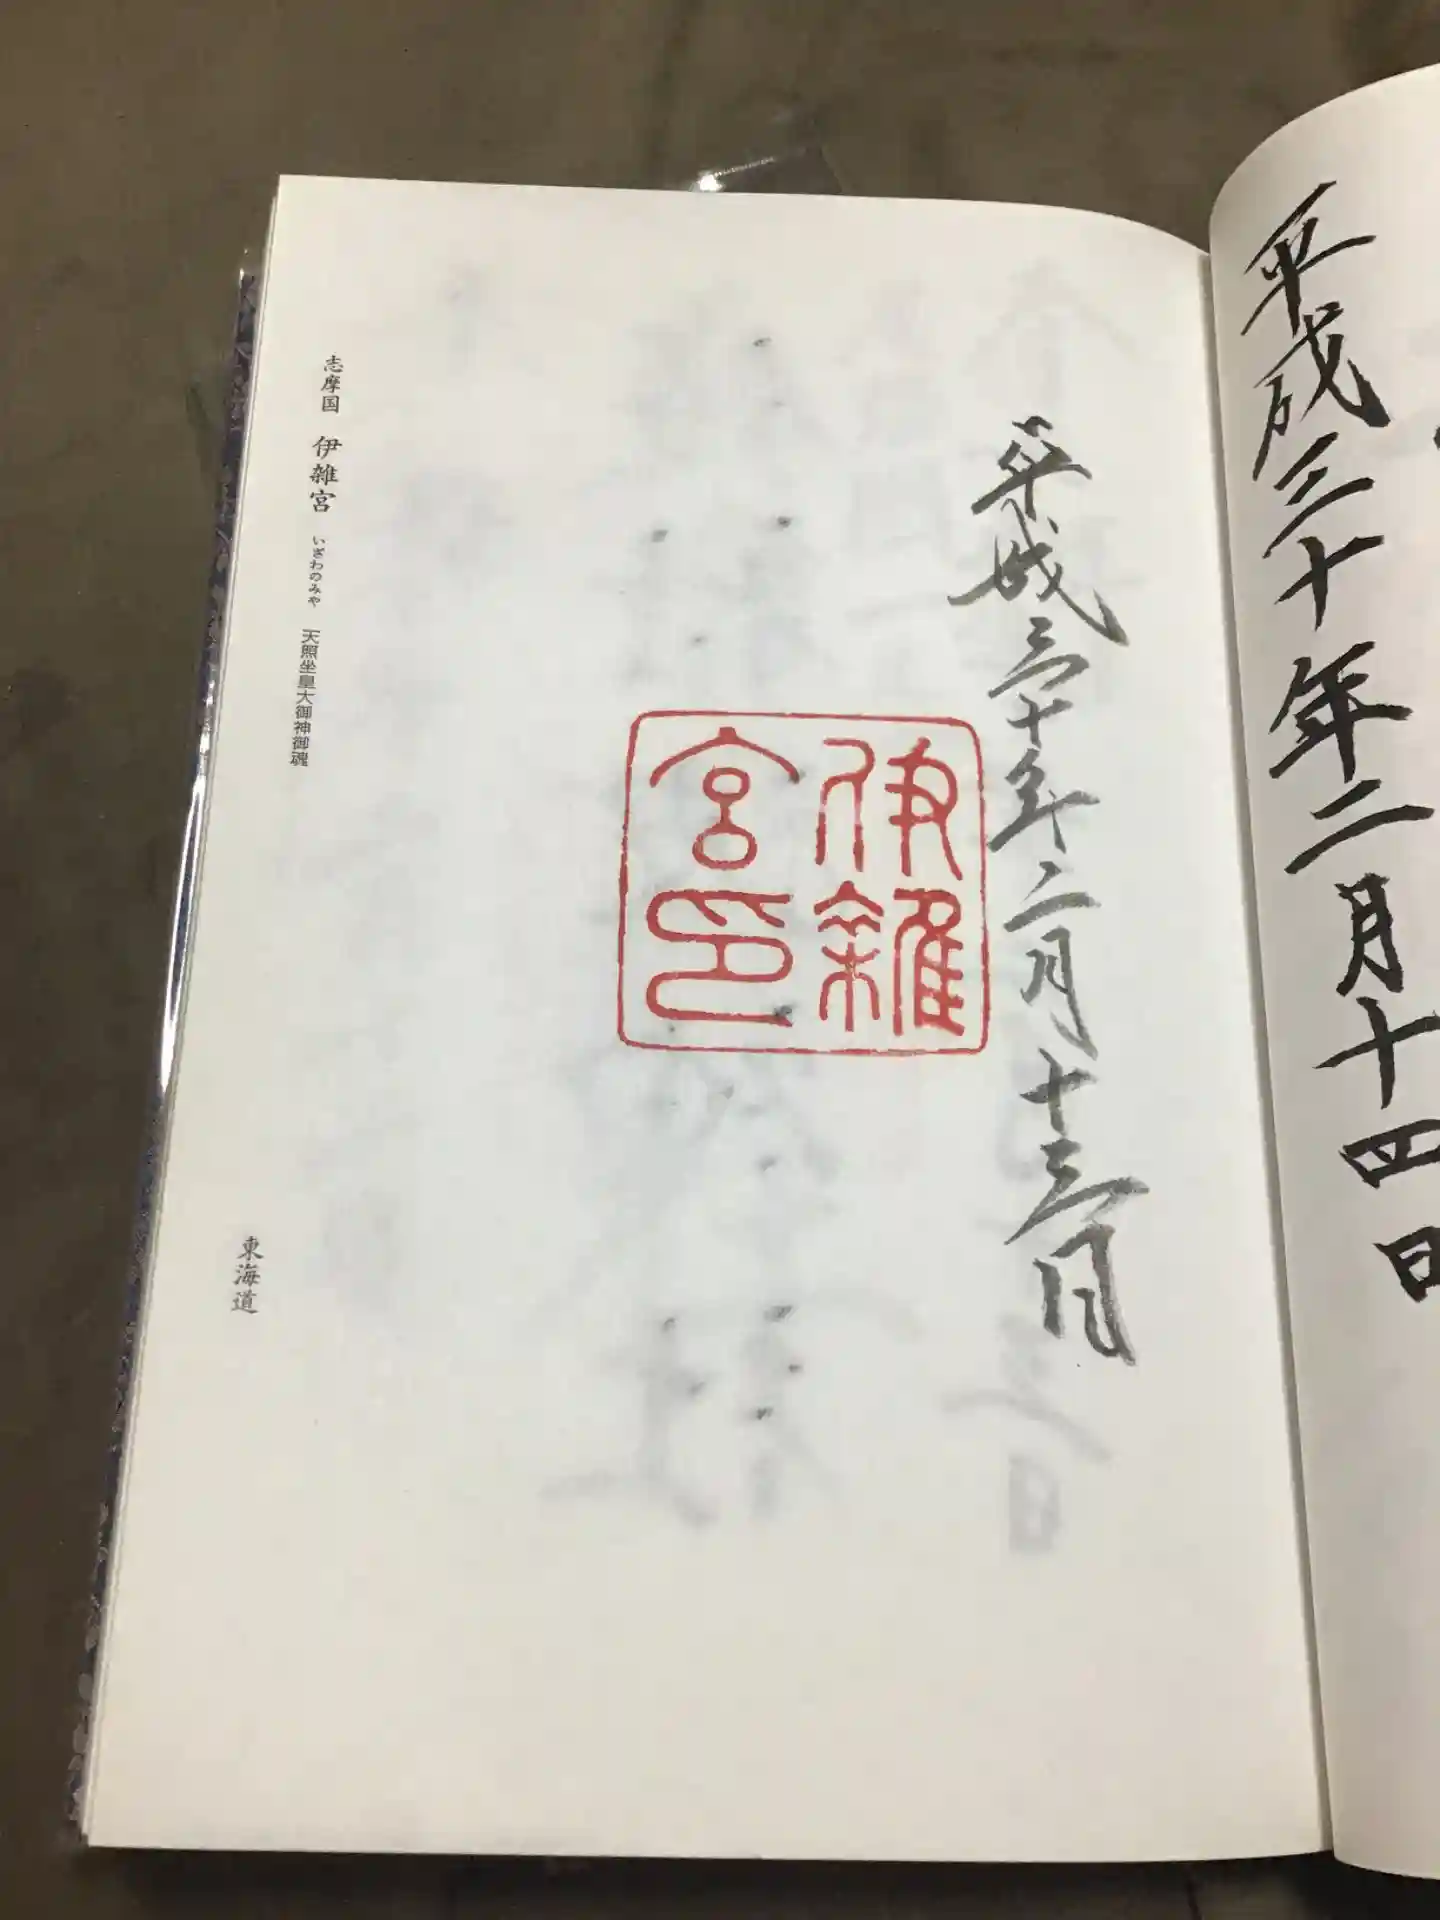 平成三十年二月十四日
平成三十年二月十三日
伊雑
宮印
志摩国 伊雑宮 いざわのみや 天照坐皇大御神御魂
東海道